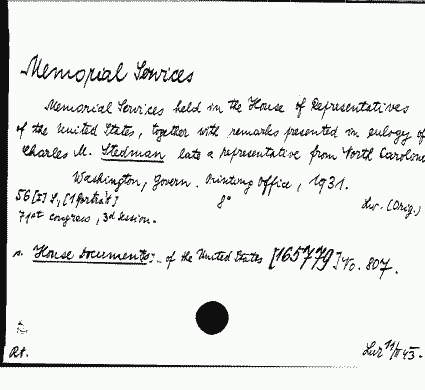 Memorial Services
Memorial Services held in the House of Representatives
of the United States, together with remarks presented in eulogy of
Charles M. Stedman late a representative from North Carolina
Washington, Govern. Printing Office, 1931.
56 [I] S, [1 Porträt] 8° Lw. (Orig.)
71st Congress, 3d Session.
s. House Documents: of the United States [165779] No. 807.
Rt. Lw 11/II 43.